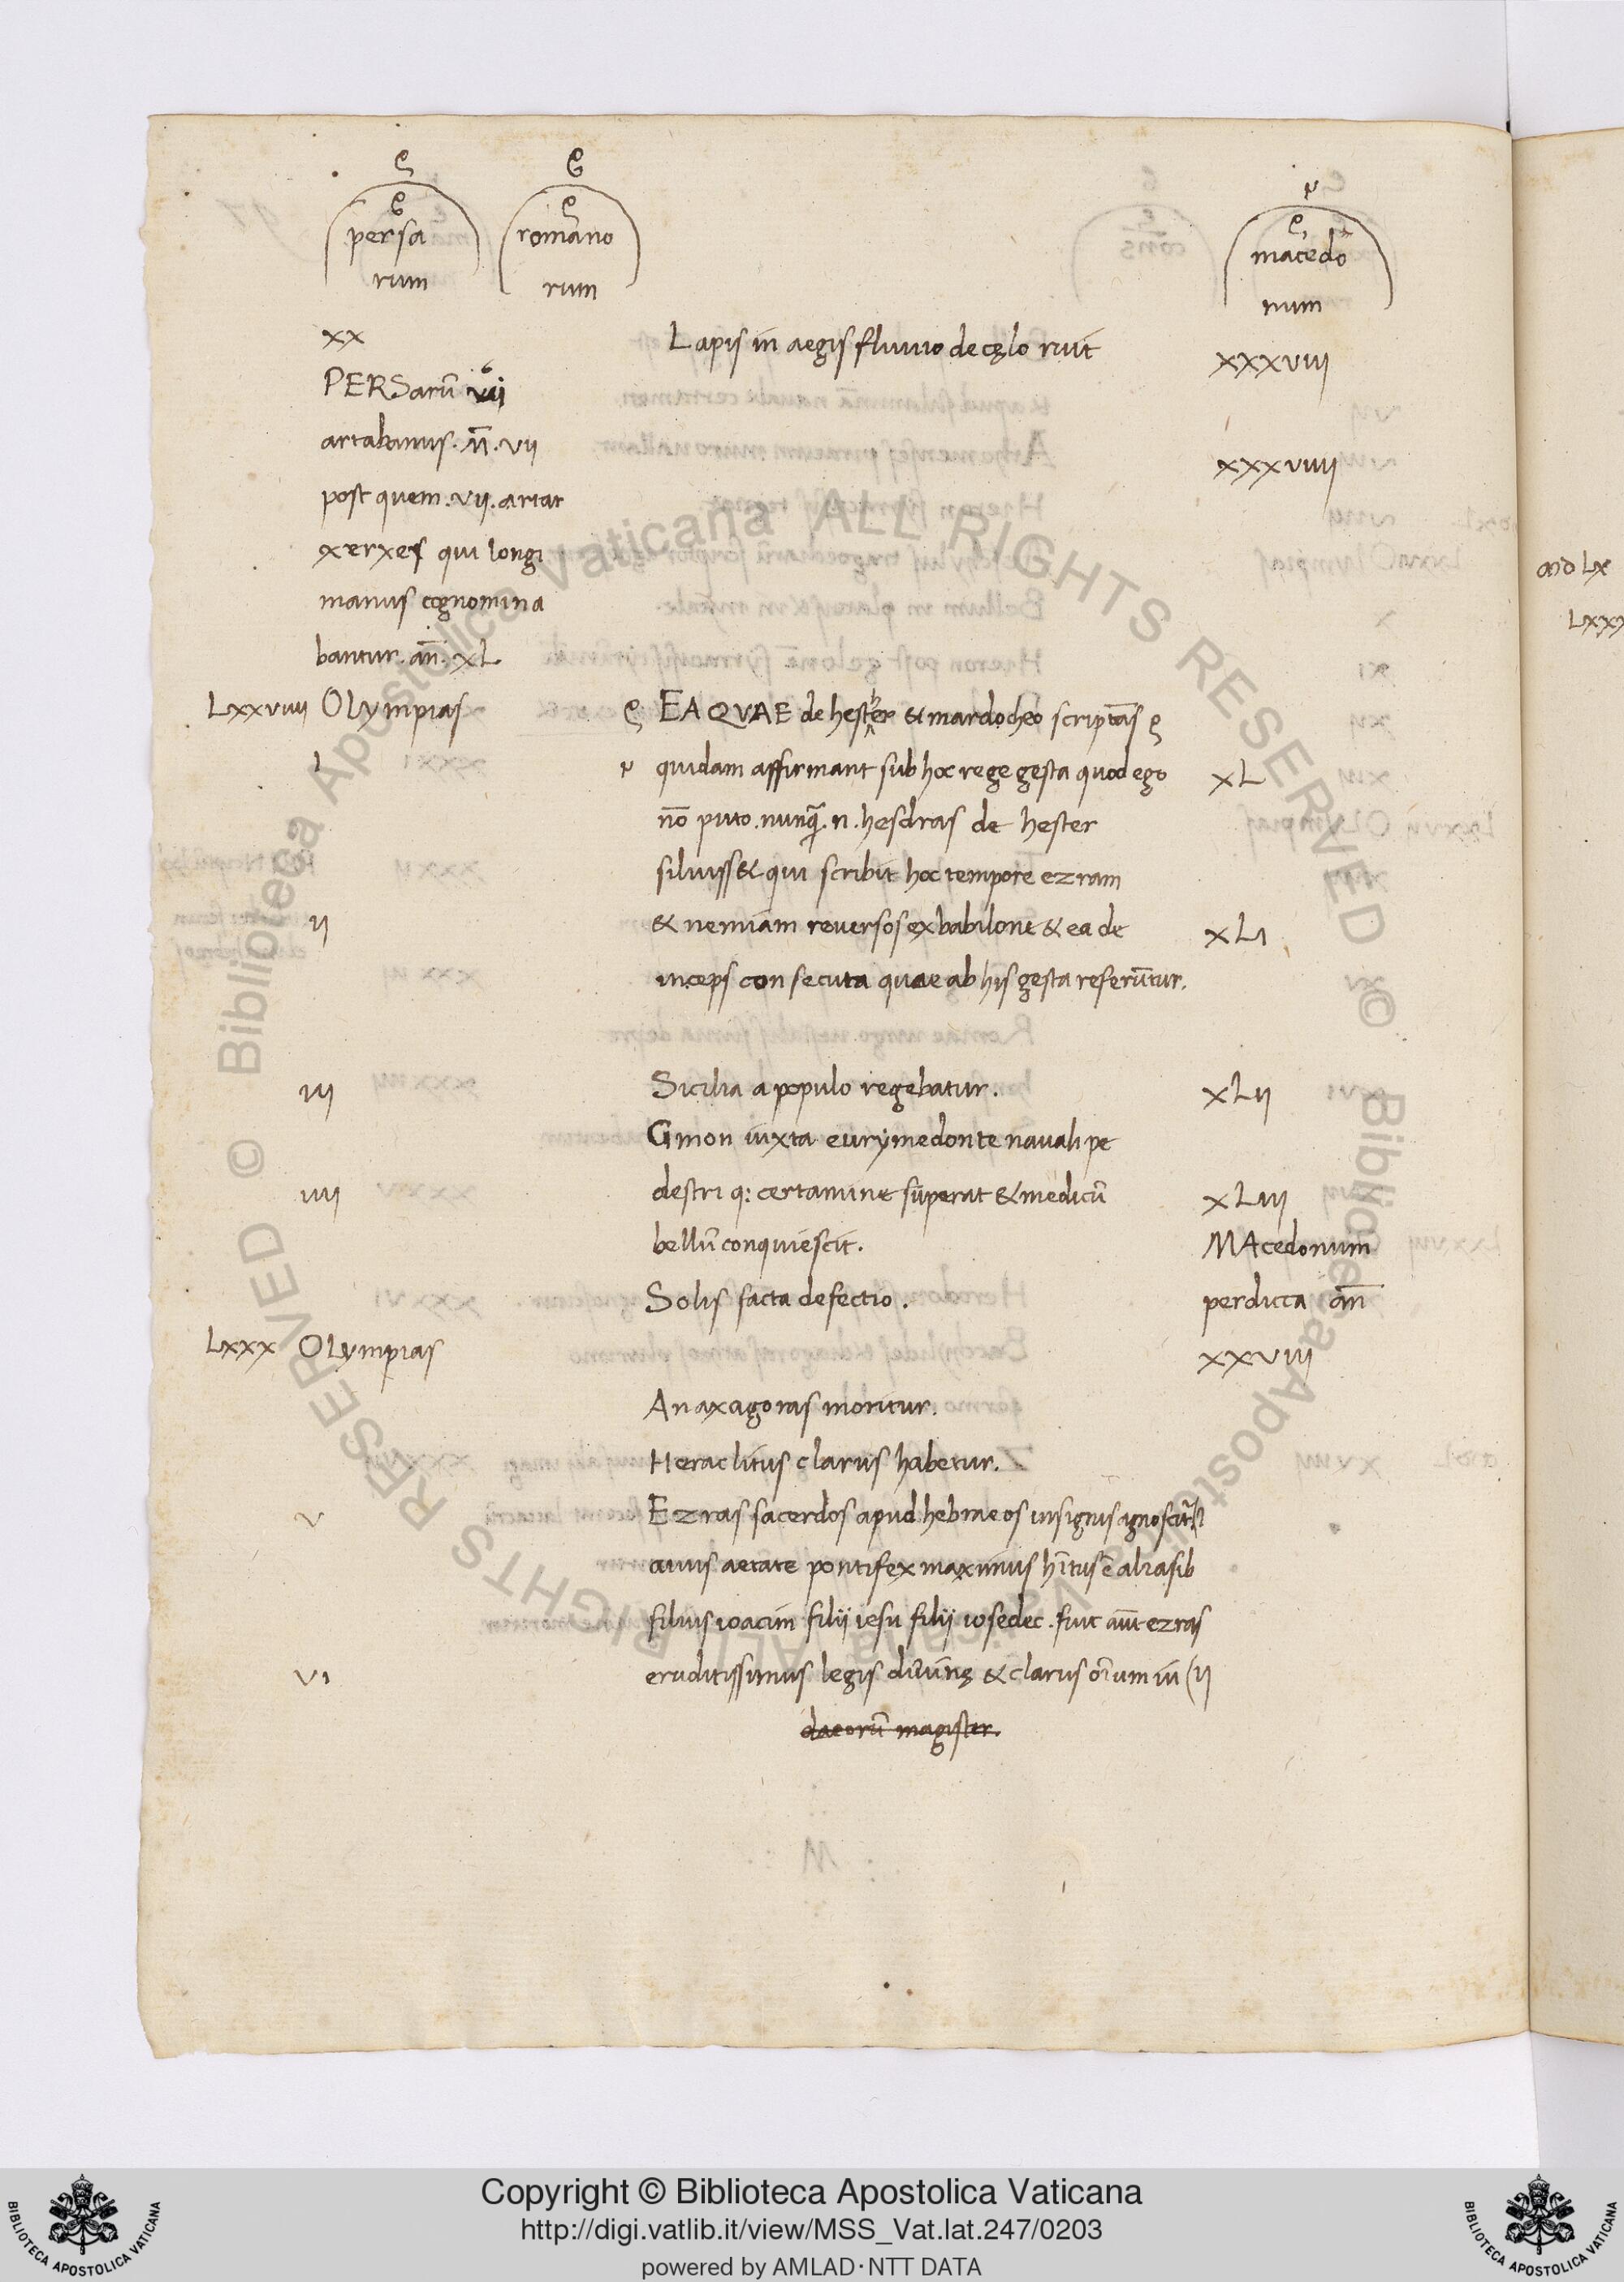 persa
rum
romano
rum
macedo
num
xx
Lapis in aegis fluuio de cęlo ruit
xxxviii
PERSarū vii
artabanus. añ. vii
xxxviiii
post quem. vii. artat
xerxes qui longi
manus cognomina
bantur. añ. xL
Lxxviiii OLympias
EA QVAE de hester & mardocheo scripta s̄
I
quidam affirmant sub hoc rege gesta quod ego
xL
nō puto. nunq̄. n. hesdras de hester
siluiss& qui scribit hoc tempore ezram
ii
& nemiam reuersos ex babilone & ea de
xLi
inceps con secuta quae ab his gesta referūtur.
iii
Sicilia a populo regebatur.
xLii
Cimon iuxta eurymedonte nauali pe
iiii
destri q: certamine superat & medicū
xLiii
bellū conquiescit.
MAcedonum
Solis facta defectio.
perdicca añ
Lxxx OLympias
xxviii
Anaxagoras moritur.
Heraclitus clarus habetur.
v
Ezras sacerdos apud hebraeos insignis agnoscit̃
cuius aetate pontifex maximus hītus ē aliasib
filius ioacim filii iesu filii iosedec. fuit aut̄ ezras
vi
eruditissimus legis diuinę & clarus oīum iu
daeorū magister.
and Lx
Lxxx
Biblioteca Apostolica Vaticana ALL RIGHTS RESERVED ©
Biblioteca Apostolica Vaticana ALL RIGHTS RESERVED ©
Copyright © Biblioteca Apostolica Vaticana
http://digi.vatlib.it/view/MSS_Vat.lat.247/0203
powered by AMLAD·NTT DATA
BIBLIOTECA APOSTOLICA VATICANA
BIBLIOTECA APOSTOLICA VATICANA